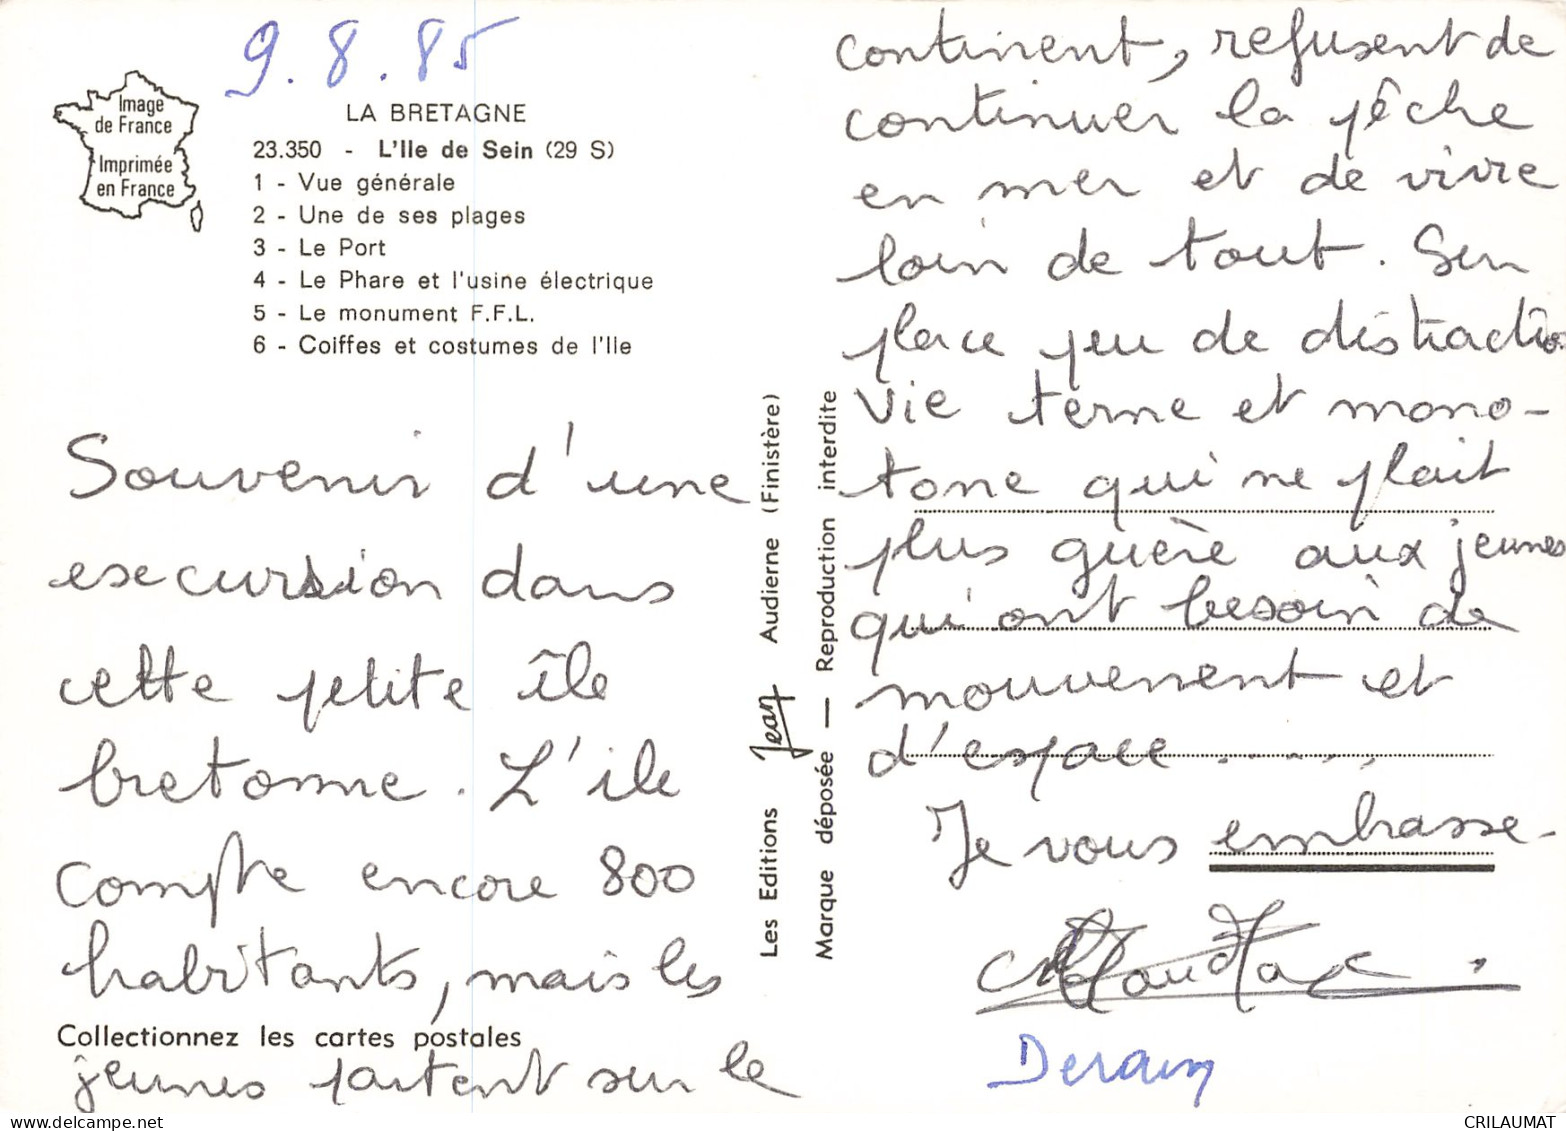 9.8.85
Image
de France
Imprimée
en France
LA BRETAGNE
23.350 - L'Ile de Sein (29 S)
1 - Vue générale
2 - Une de ses plages
3 - Le Port
4 - Le Phare et l'usine électrique
5 - Le monument F.F.L.
6 - Coiffes et costumes de l'Ile
Souvenir d'une
excursion dans
cette petite île
bretonne. L'ile
compte encore 800
habitants, mais les
Collectionnez les cartes postales
jeunes partent sur le
Les Editions Jean Audierne (Finistère)
Marque déposée — Reproduction interdite
continent, refusent de
continuer la pêche
en mer et de vivre
loin de tout. Sur
place peu de distraction
vie terne et mono-
tone qui ne plait
plus guère aux jeunes
qui ont besoin de
mouvement et
d'espace ......
Je vous embrasse.
CRILAUMAT